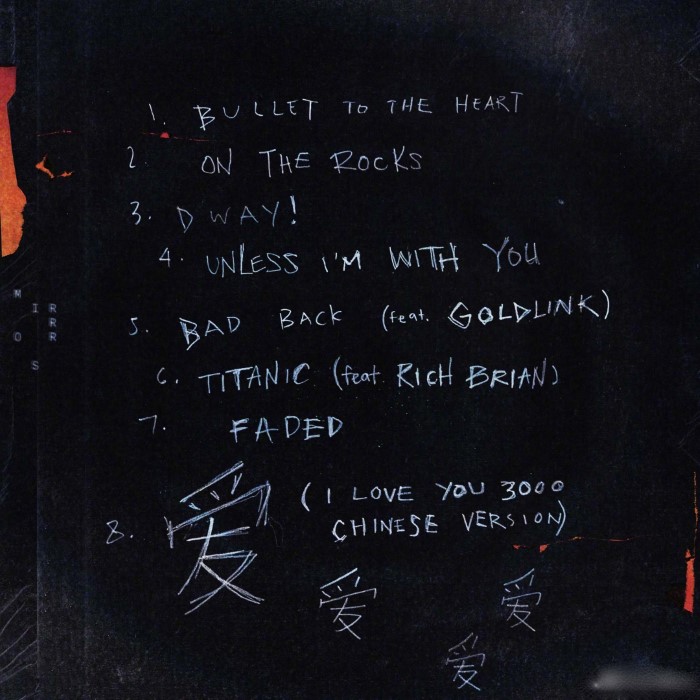 1. BULLET TO THE HEART
2. ON THE ROCKS
3. DWAY!
4. UNLESS I'M WITH YOU
5. BAD BACK (feat. GOLDLINK)
6. TITANIC (feat. RICH BRIAN)
7. FADED
8. 爱 (I LOVE YOU 3000
CHINESE VERSION)
爱
爱
爱
M
I R
R
O R
S